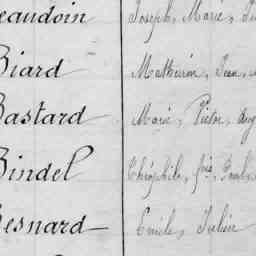 eaudoin Joseph, Marie,
Biard Mathurin, Jean,
Bastard Marie, Victor, Aug
Bindel Théophile, frs, Emile
Besnard Emile, Julien